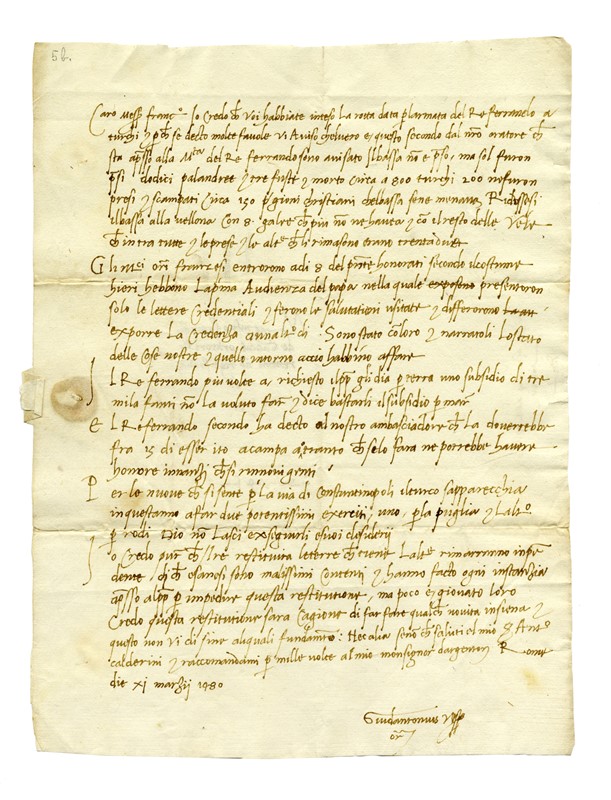 5 b.
Caro mess franc.º Io Credo ch Voi habbiate inteso La rotta data pLarmata del Re ferrando a
turchi et pch se decto molte favole Vi Aviso chelvero e questo secondo dal nro oratore ch
sta apsso alla M.ta del Re ferrando sono avisato Ilbassa no e pso, ma sol furon
psi dodici palandree et tre fuste et morto Circa a 800 turchi 200 nefuron
presi et scampati Circa 150 pgioni christiani chelbassa sene menava, Ridussesi
ilbassa alla vellona Con 8 galee ch piu no ne havea et co ilresto delle Vele
ch intra tutte et leprese et le alte ch li rimasono erano trentadue
G li ori franzesi entrorono adi 8 del pnte honorati secondo ilcostume
hieri hebbono Laprima Audienza del papa nella quale exposono presentoron
solo le lettere Credentiali et ferono le salutationi usitate et differirono
exporre La Credenza a di Sono stato Co loro et narratoli Lo stato
delle Cose nostre et quello intorno accio habbino affare
I L Re ferrando piu volte a richiesto ilpp gli dia p terra uno subsidio di tre
mila fanti no La voluto far et dice bastarli ilsubsidio p mar
E L Re ferrando secondo ha decto al nostro ambasciadore ch La doverrebbe
fra 15 di esser ito a campo a otranto ch selo fara ne potrebbe havere
honore innanzi ch si rinnuovi genti
P er le nuove ch si sente p la via di Constantinopoli ilturco sapparecchia
inquestanno affar due potentissimi exerciti, uno p la puglia et Laltº
p rodi Dio no Lasci exseguirli esuoi desiderij
I o Credo pur ch restituira leterre ch tiene Lalte rimarranno inpe
dente, di ch esanesi sono malissimi Contenti et hanno facto ogni instanzia
apsso alpp p impedire questa restitutione, ma poco e giovato loro
Credo questa restitutione sara Cagione di far fare qualch novita insiena et
questo non Vi di sine aliquali fundamto: Nec alia seno ch saluti el mio S Antº
calderini et raccomandami p mille volte al mio monsignor dargenton Rome
die xj martij 1480
Guidantonius Vesp
or